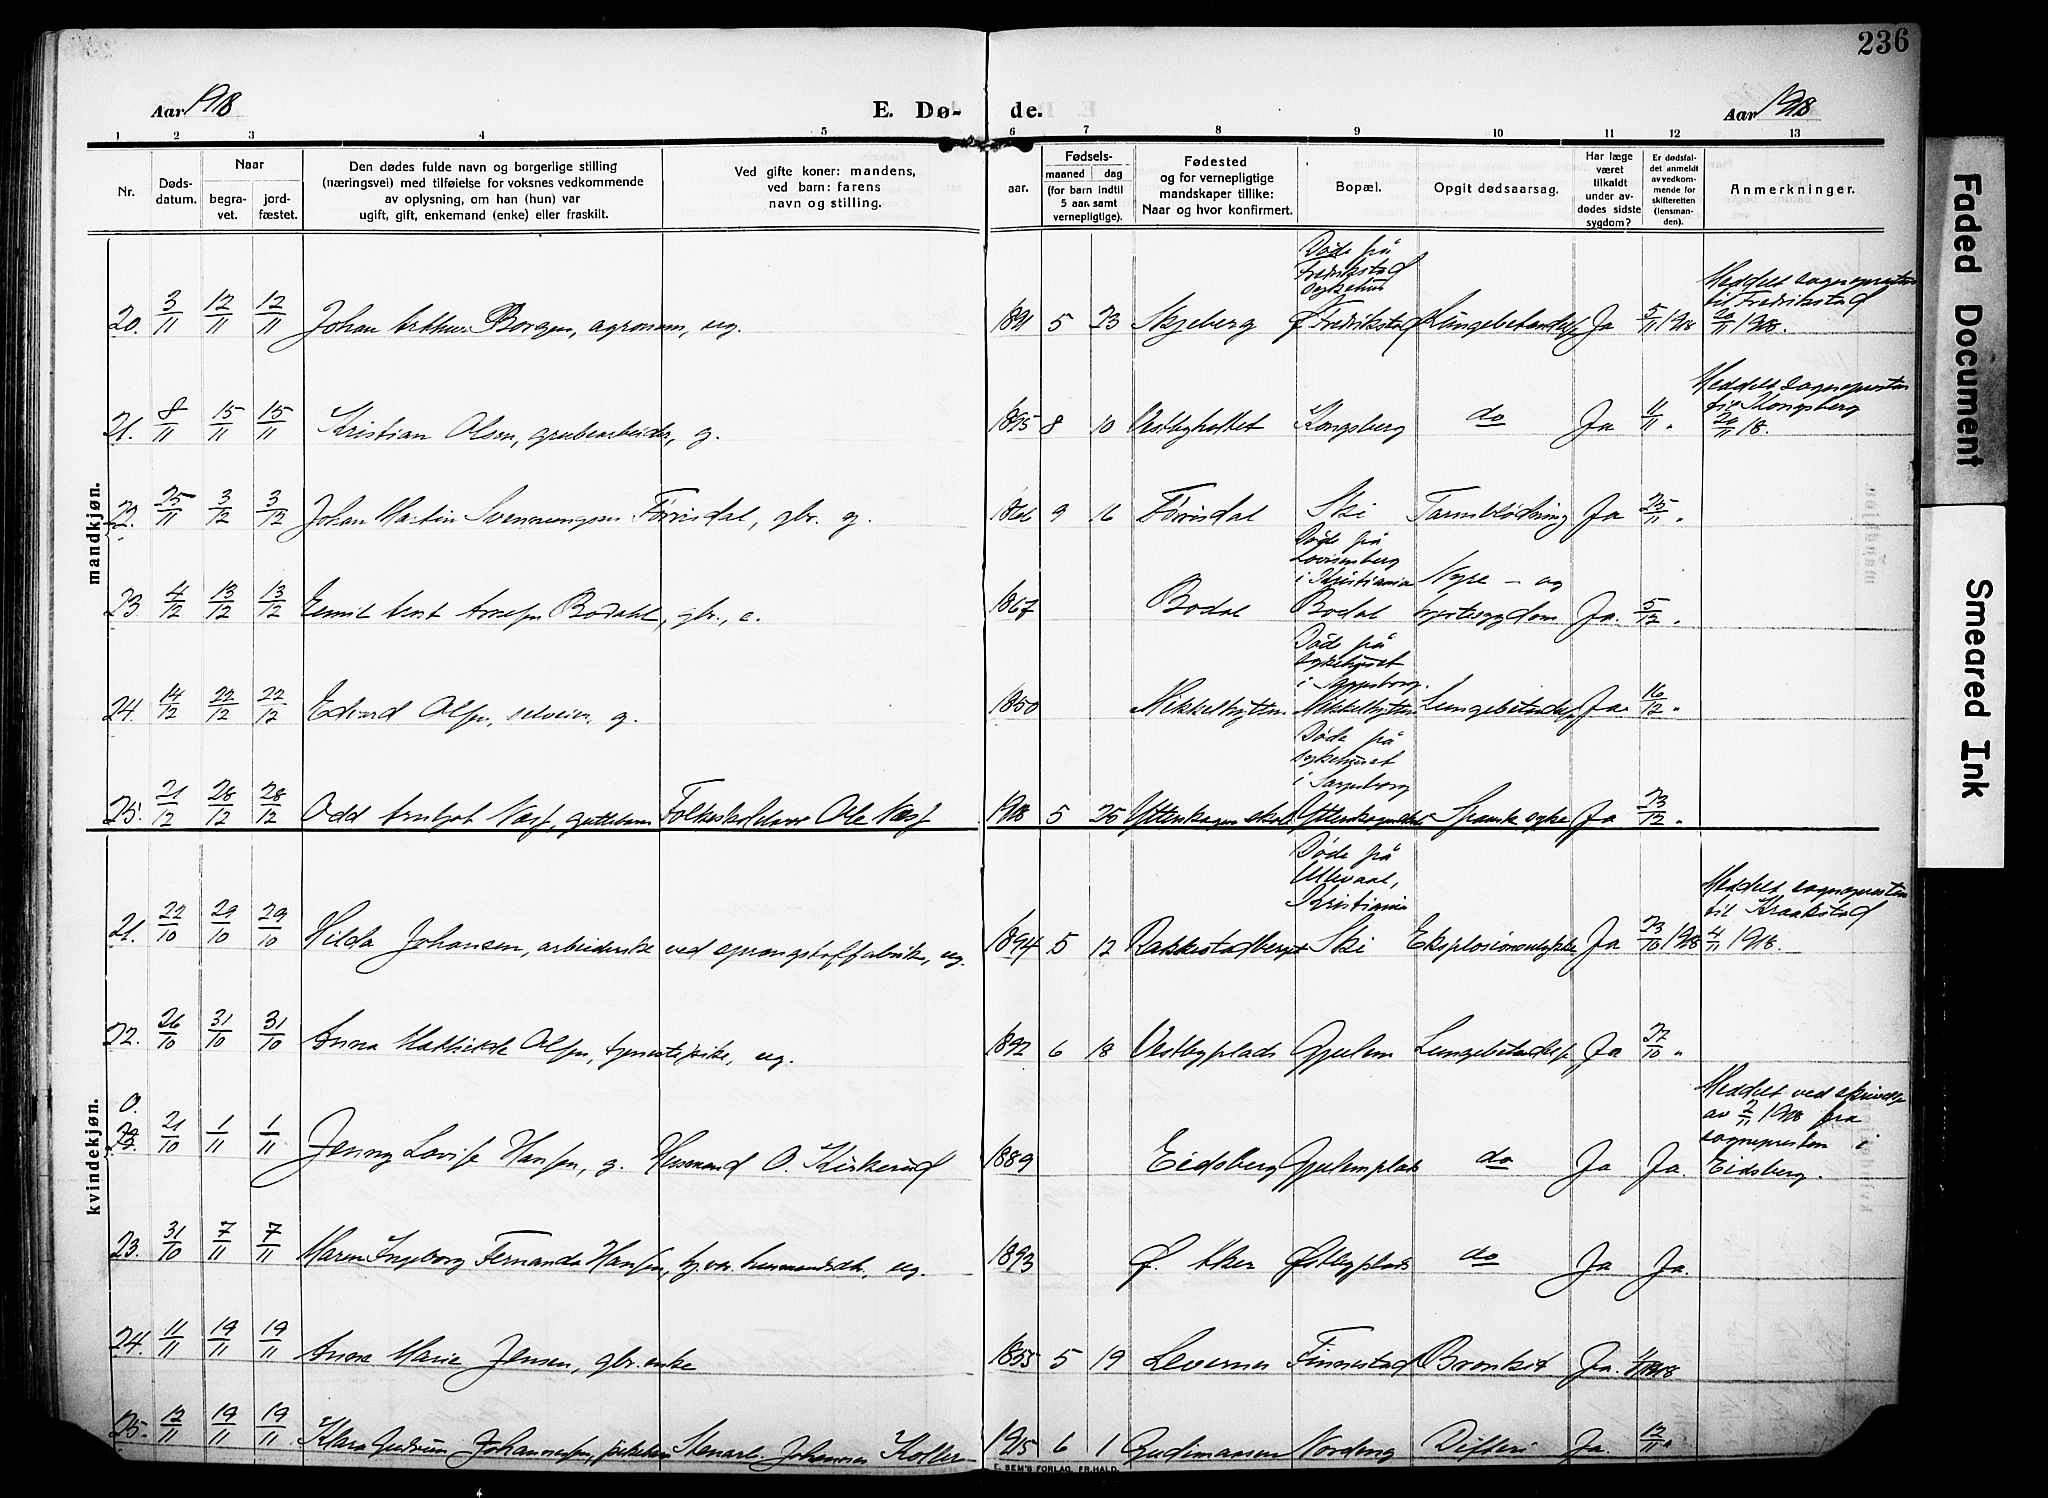 236
Aar 1918
E. Dø-
de.
Aar 1918
1 2 3 4 5 6 7 8 9 10 11 12 13
Nr.
Døds-
datum.
Naar
begra-
vet.
jord-
fæstet.
Den dødes fulde navn og borgerlige stilling
(næringsvei) med tilføielse for voksnes vedkommende
av oplysning, om han (hun) var
ugift, gift, enkemand (enke) eller fraskilt.
Ved gifte koner: mandens,
ved barn: farens
navn og stilling.
Fødsels-
aar.
maaned dag
(for barn indtil
5 aar samt
vernepligtige).
Fødested
og for vernepligtige
mandskaper tillike:
Naar og hvor konfirmert.
Bopæl.
Opgit dødsaarsag.
Har læge
været
tilkaldt
under av-
dødes sidste
sygdom?
Er dødsfal-
det anmeldt
av vedkom-
mende for
skifteretten
(lensman-
den).
Anmerkninger.
mandkjøn.
Døde på
Fredrikstad
sykehus
Meddelt sognepresten
til Fredrikstad
20. 3/11 12/11 12/11 Johan Arthur Borgen, agronom, ug. 1891 5 23 Skjeberg Fredrikstad Lungebetændelse Ja 5/11 1918 20/11 1918.
Meddelt sognepresten
til Kongsberg
21. 8/11 15/11 15/11 Kristian Olsen, grubearbeider, g. 1895 8 10 Vestbyholtet Kongsberg do Ja 11/11 " 20/11 18.
22. 25/11 3/12 3/12 Johan Martin Svenningsen Førrisdal, gbr. g. 9 16 Førrisdal Ski Tarmblødning Ja 25/11 "
Døde på
Lovisenberg
i Kristiania Nyre - og
23 4/12 13/12 13/12 Emil Bodahl, gbr., e. 1867 Bodal Bodal hjertesygdom Ja. 5/12 "
Døde på
sykehuset
i Sarpsborg.
24. 14/12 22/12 22/12 Edvard Olsen, selveier, g. 1850 Mikkelhytten Mikkelhytten Lungebetændelse Ja. 16/12 "
Døde på
sykehuset
i Sarpsborg
25. 21/12 28/12 28/12 Odd Næss, guttebarn Folkeskolelærer Ole Næss 1918 5 25 Spanske syke Ja 23/12 "
kvindekjøn.
Døde på
Ullevaal,
Kristiania
Meddelt sognepresten
til Kraakstad
21. 22/10 29/10 29/10 Hilda Johansen, arbeiderske ved sprængstoffabrikk, ug. 1894 5 12 Rakkestadberget Ski Eksplosionsulykke Ja 23/10 1918 4/11 1918.
22. 26/10 31/10 31/10 Anna Mathilde Olsen, tjenestepike, ug. 1892 6 18 Vestbyplads Gjulem Lungebetændelse Ja 27/10 "
Meddelt ved skrivelse
av 2/11 1918 fra
sognepresten i
Eidsberg.
0. 21/10 1/11 1/11 Jenny Lovise Hansen, g. Husmand O. Kirkerud 1889 Eidsberg Gjulemplads do Ja Ja.
23. 31/10 7/11 7/11 Maren Ingeborg Fernanda Hansen, hj.vær. husmandsdtr., ug. 1893 Ø. Aker Østbyplads do Ja Ja.
24. 11/11 19/11 19/11 Anna Marie Jensen, gbr.enke 1855 5 19 Levernes Finnestad Bronkit Ja.
25. 12/11 19/11 19/11 Klara Gudrun Johannessen, pikebarn Stenarb. Johannes Koller 1915 6 1 Gudimansen Nordeng Difteri Ja. 12/11 "
E. SEM'S FORLAG, FR.HALD.
Faded Document
Smeared Ink